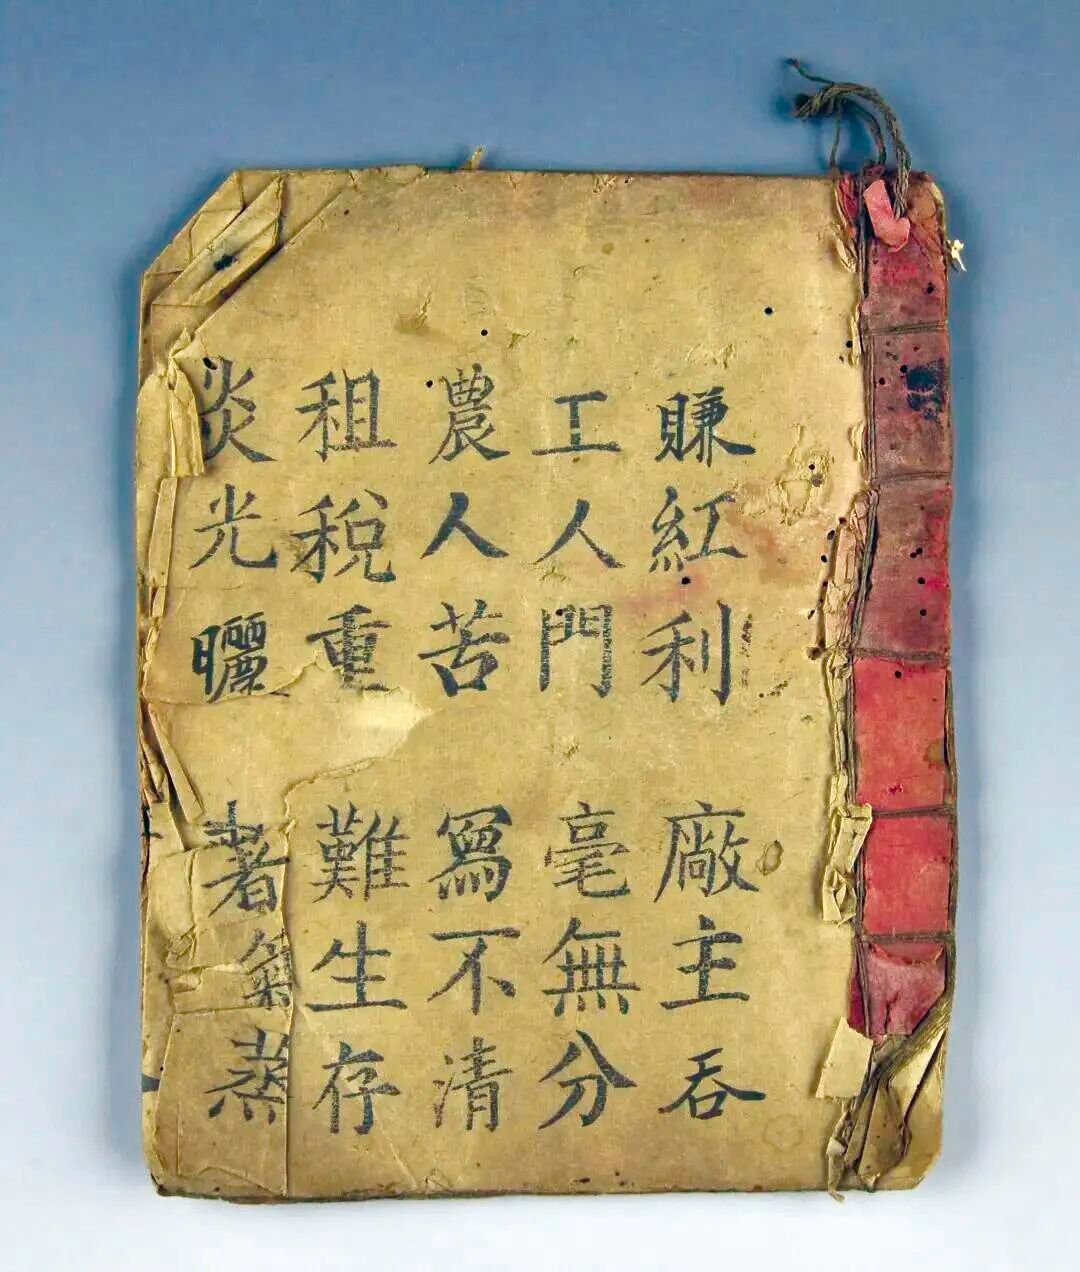 賺紅利廠主吞
工人門毫無分
農人苦寫不清
租稅重難生存
炎光曬著氣蒸